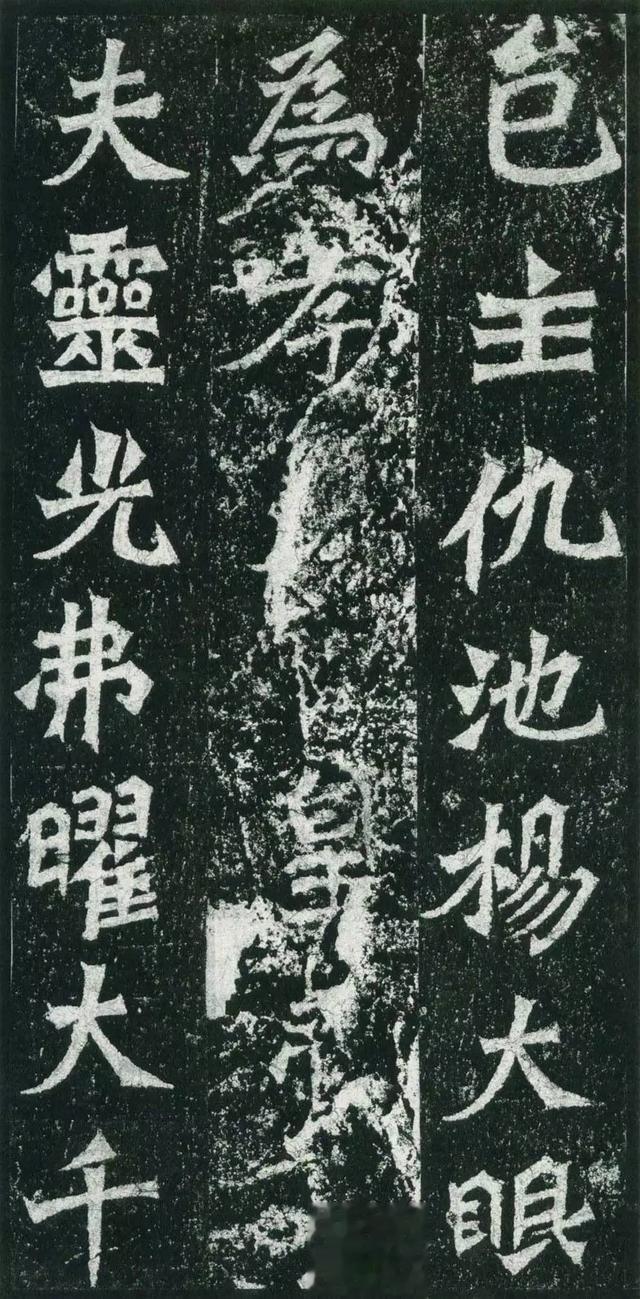 邑主仇池楊大眼
為孝皇
夫靈光弗曜大千